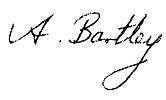 A. Bartley